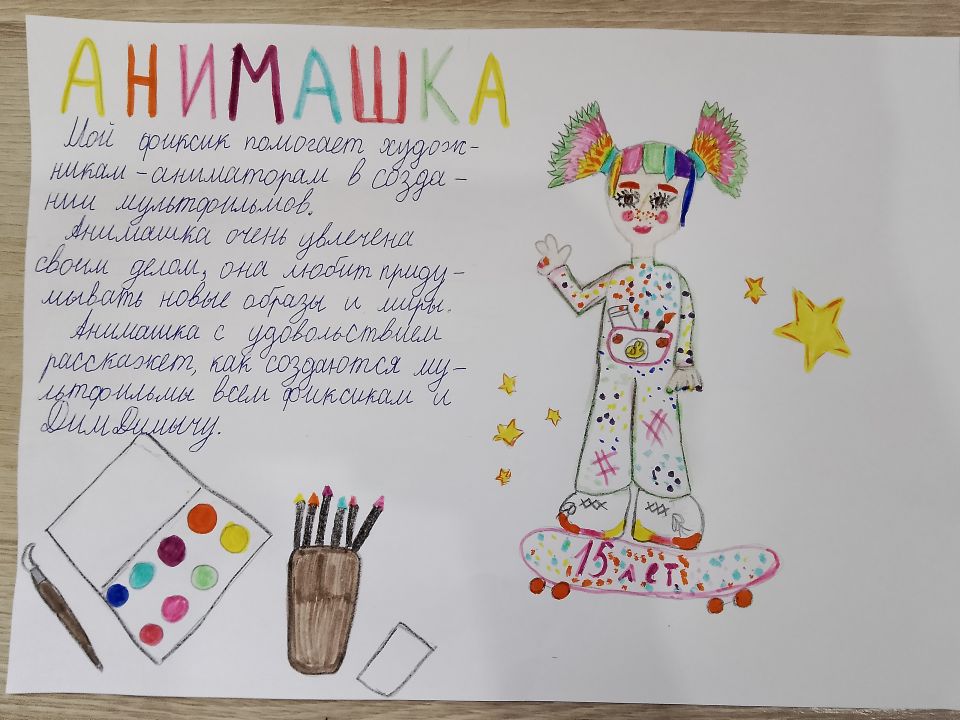 АНИМАШКА
Мой фиксик помогает худож-
никам-аниматорам в созда-
нии мультфильмов.
Анимашка очень увлечена
своим делом, она любит приду-
мывать новые образы и миры.
Анимашка с удовольствием
расскажет, как создаются му-
льтфильмы всем фиксикам и
ДимДимычу.
15 лет